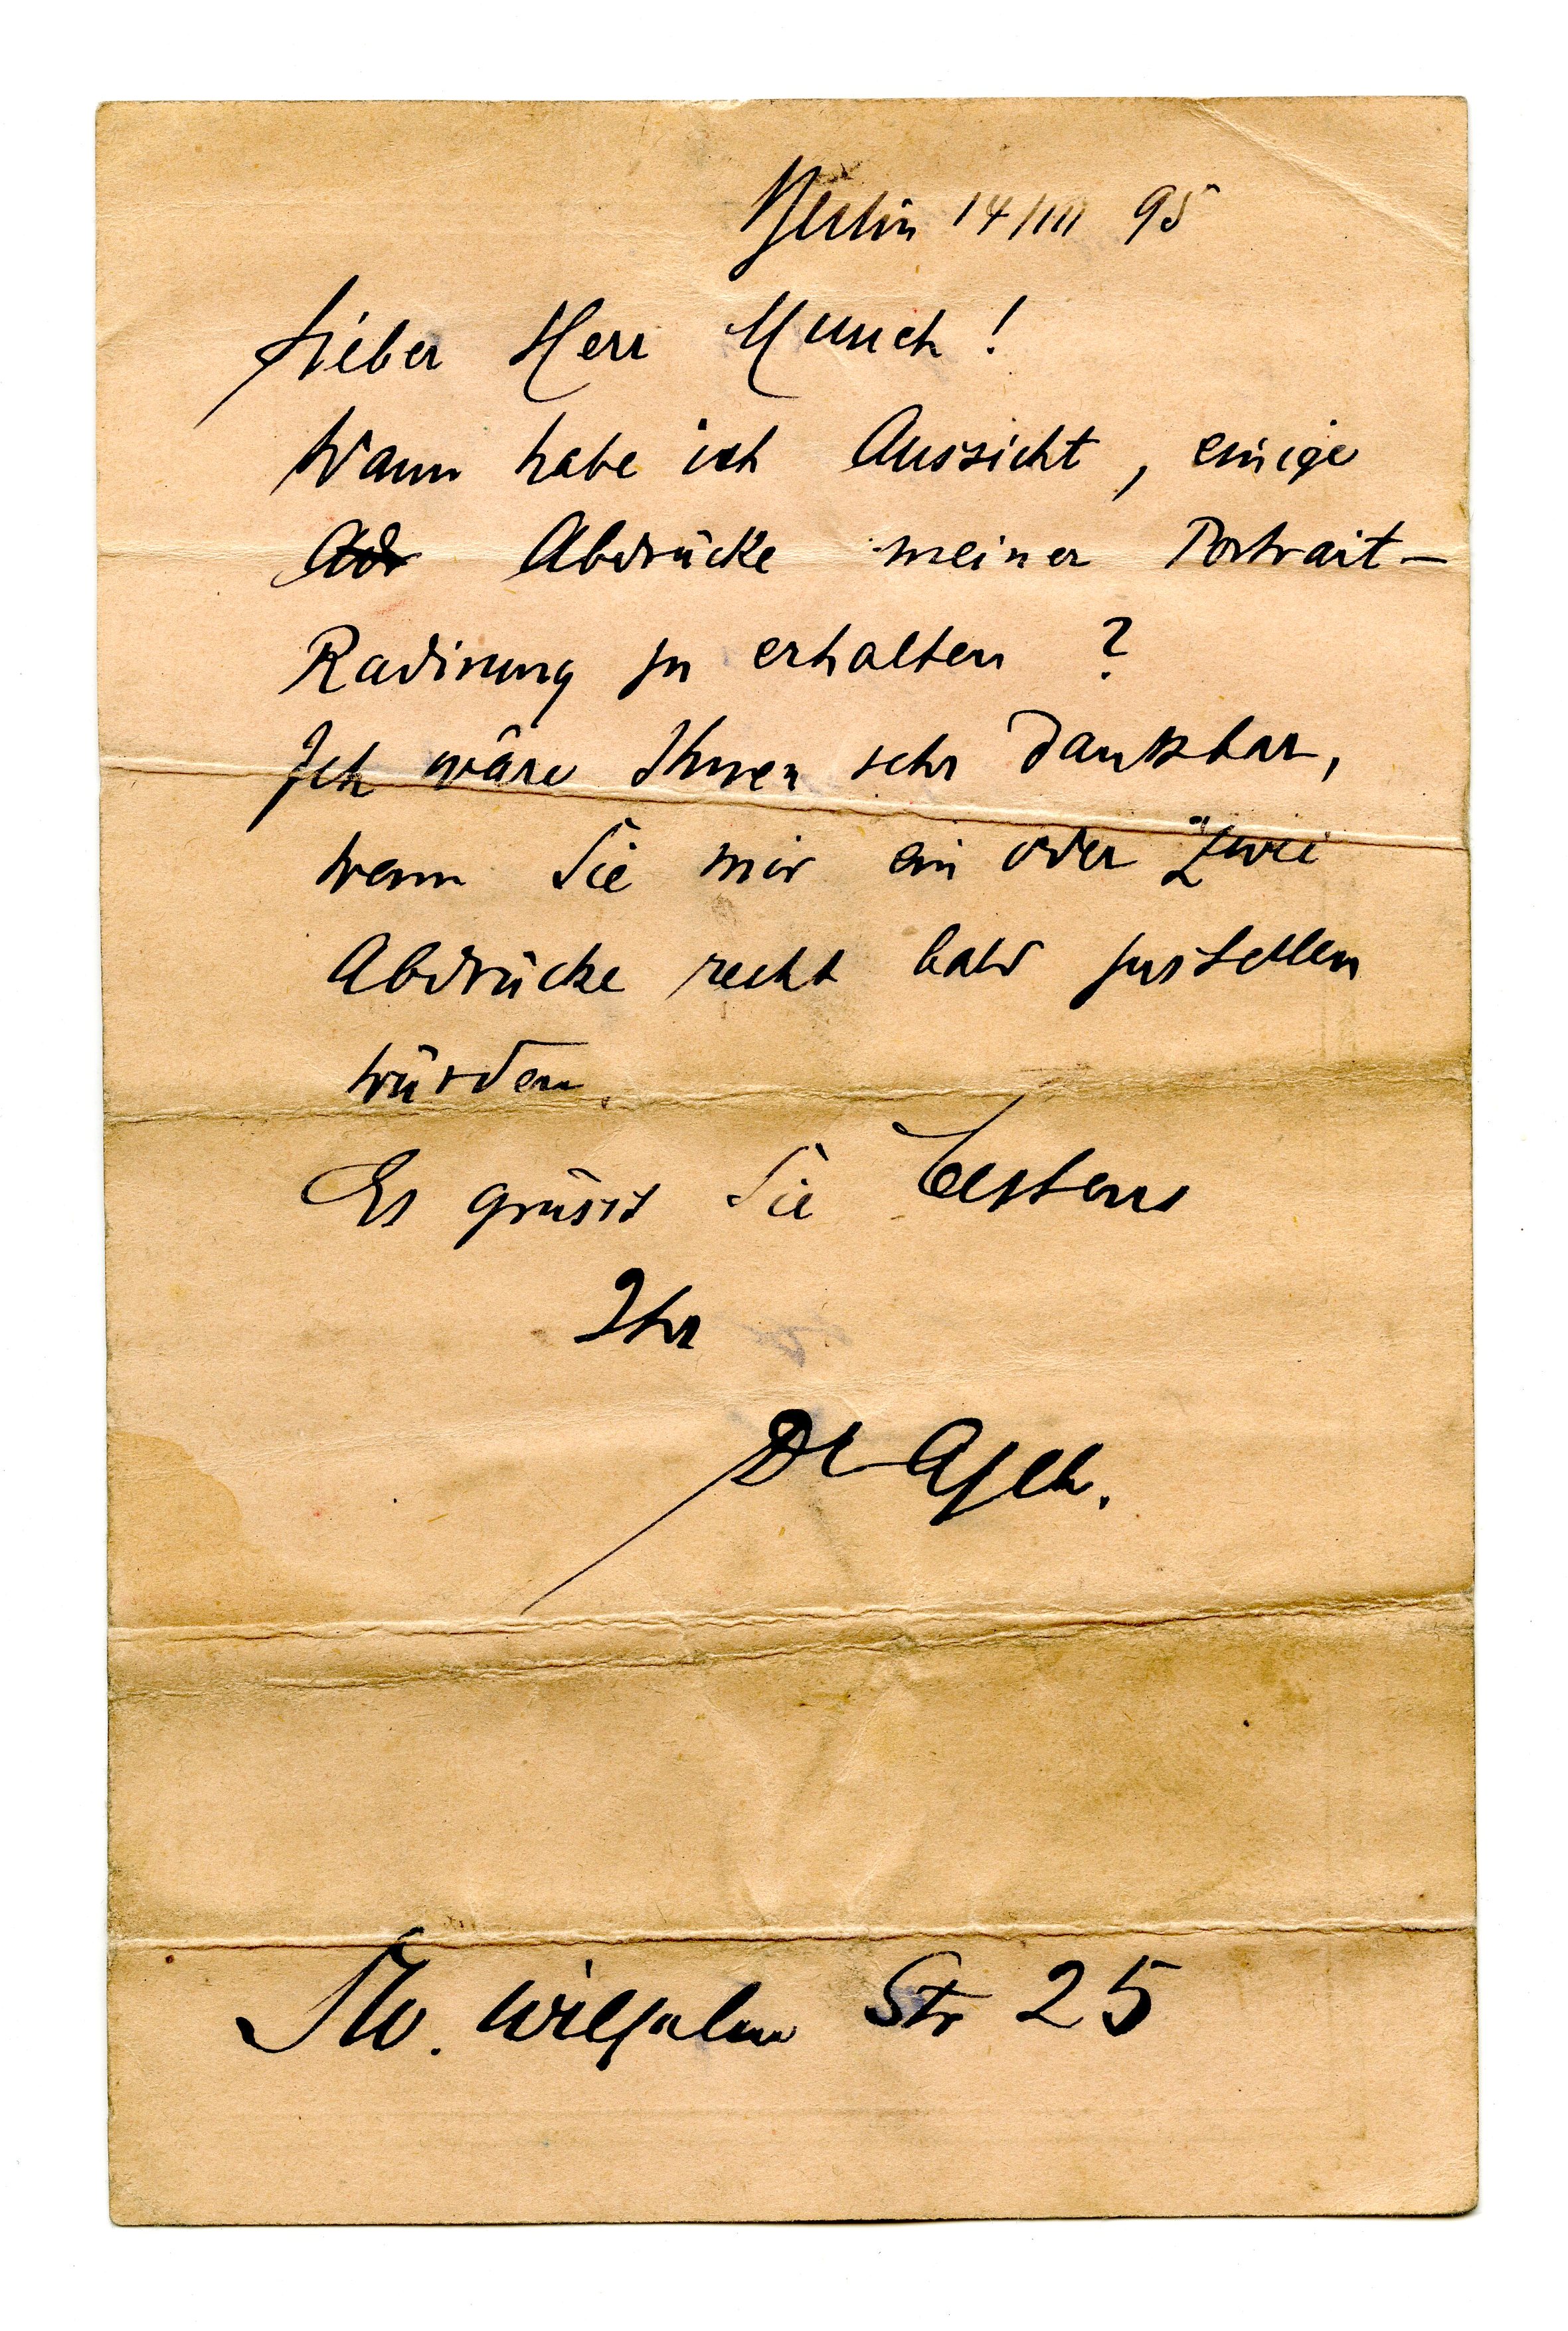 Berlin 14/III 95
Lieber Herr Munch!
Wann habe ich Aussicht, einige
Adr Abdrücke meiner Portrait-
Radirung zu erhalten?
Ich wäre Ihnen sehr dankbar,
wenn Sie mir ein oder zwei
Abdrücke recht bald zustellen
würden.
Es grüsst Sie bestens
Ihr
Dr Asch.
SW. Wilhelm Str 25